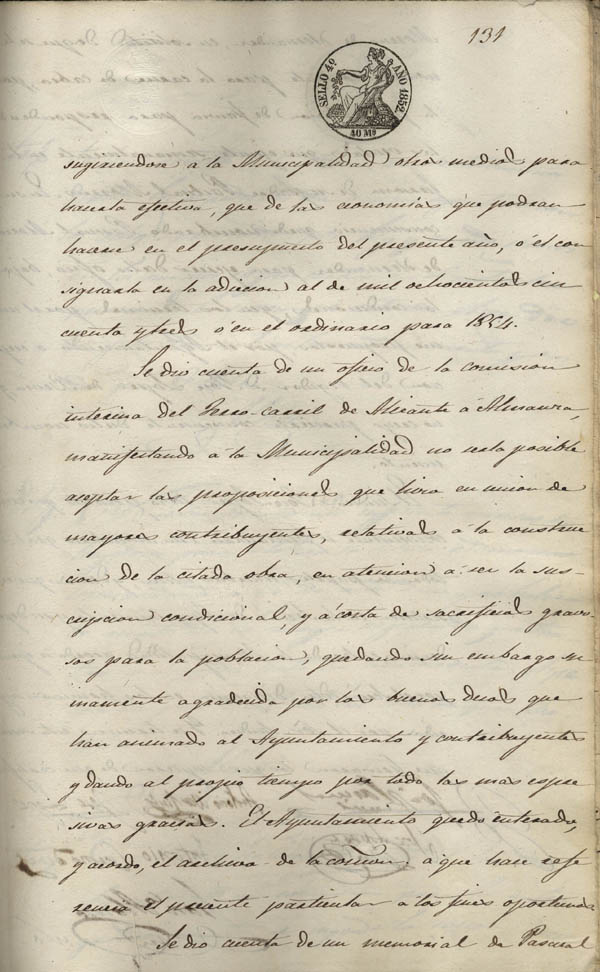 131
SELLO 4º AÑO 1852.
40 Ms
sugiriendose a la Municipalidad otros medios para
hacerla efectiva, que de las economias que podran
hacerse en el presupuesto del presente año, ó el con
signarla en la adicion al de mil ochocientos cin
cuenta y tres ó en el ordinario para 1854.
Se dio cuenta de un oficio de la comision
interina del Ferro-carril de Alicante á Almansa,
manifestando á la Municipalidad no serla posible
aceptar las proposiciones que hizo en union de
mayores contribuyentes, relativas á la construc
cion de la citada obra, en atencion á ser la sus
cripcion condicional, y á costa de sacrificios gravo
sos para la poblacion, quedando sin embargo su
mamente agradecida por los buenos deseos que
han animado al Ayuntamiento y contribuyentes
y dando al propio tiempo por todo las mas espre
sivas gracias. El Ayuntamiento quedó enterado,
y acordó, el archivo de la comon. a que hace refe
rencia el presente particular a los fines oportunos
Se dio cuenta de un memorial de Pascual